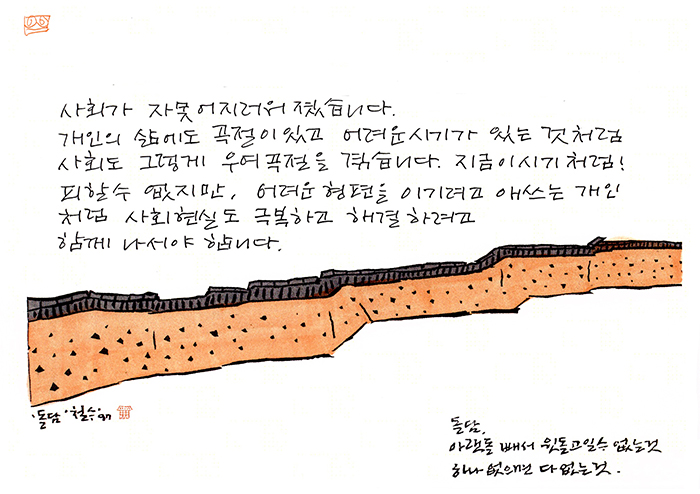 사회가 자못 어지러워 졌습니다.
개인의 삶에도 곡절이 있고 어려운 시기가 있는 것 처럼
사회도 그렇게 우여곡절을 겪습니다. 지금 이 시기 처럼!
피할 수 없지만, 어려운 형편을 이기려고 애쓰는 개인
처럼 사회현실도 극복하고 해결하려고
함께 나서야 합니다.
'돌담' 철수 '97
돌담,
아랫돌 빼서 윗돌 고일 수 없는 것
하나 없으면 다 없는 것.